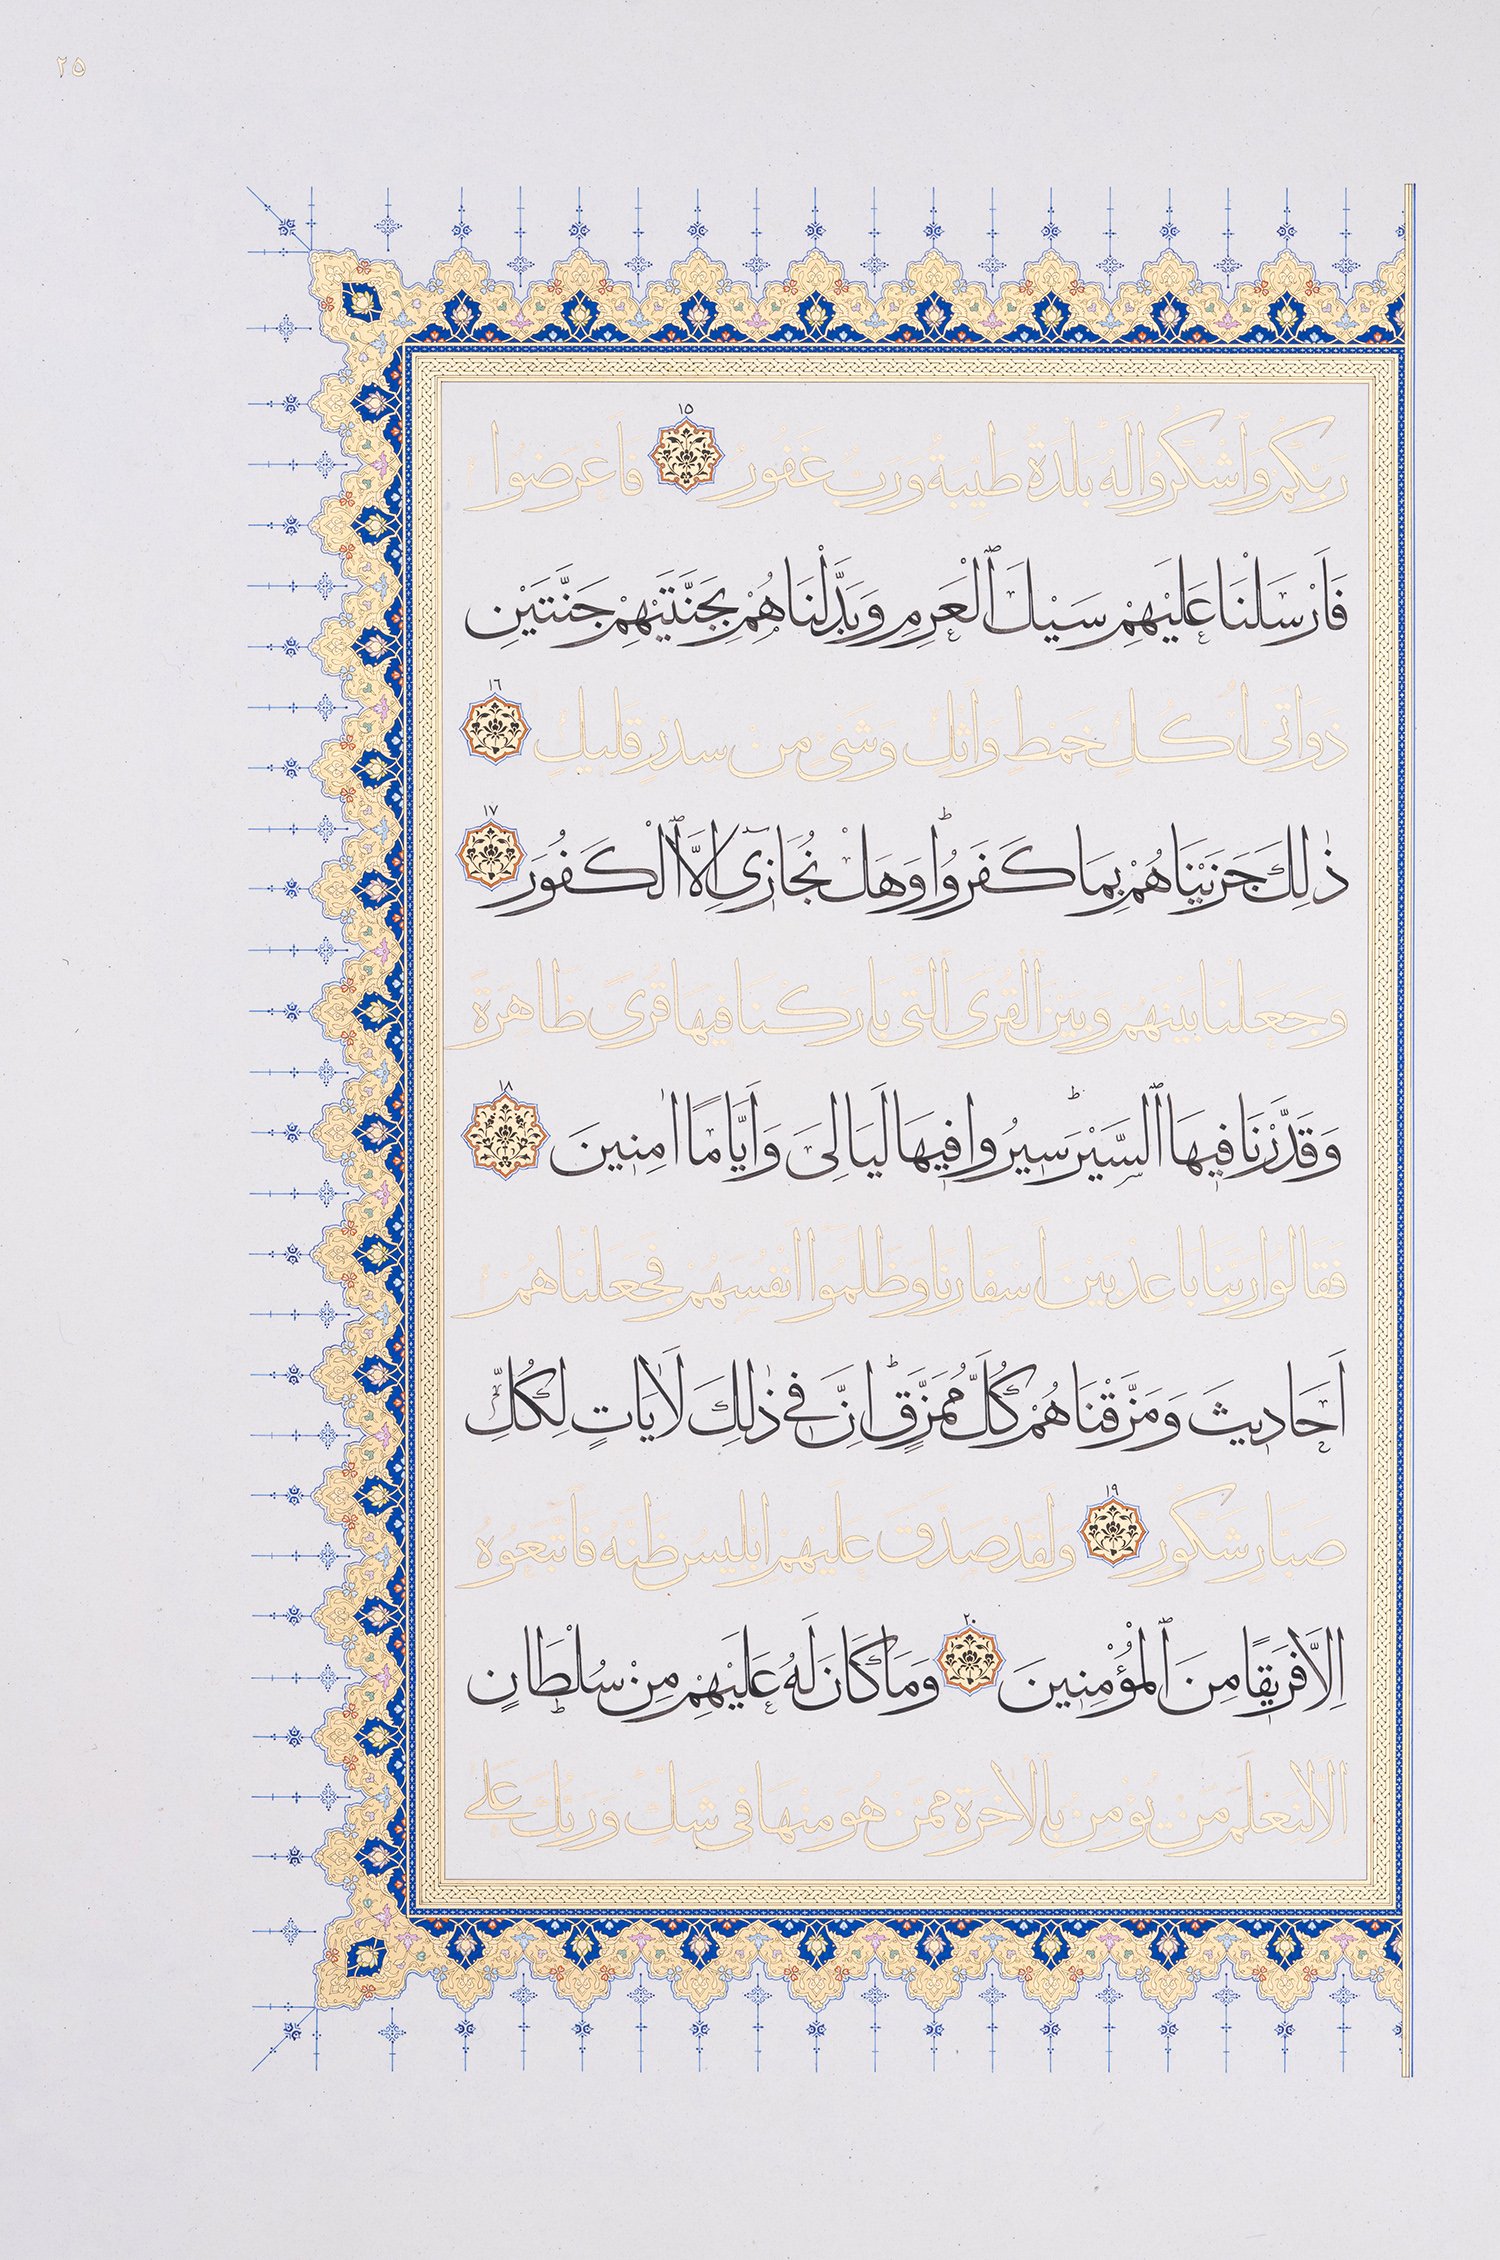 ٢٥
رَبِّكُمْ وَٱشْكُرُوا لَهُ بَلْدَةٌ طَيِّبَةٌ وَرَبٌّ غَفُورٌ ١٥ فَأَعْرَضُوا
فَأَرْسَلْنَا عَلَيْهِمْ سَيْلَ ٱلْعَرِمِ وَبَدَّلْنَاهُمْ بِجَنَّتَيْهِمْ جَنَّتَيْنِ
ذَوَاتَىْ أُكُلٍ خَمْطٍ وَأَثْلٍ وَشَىْءٍ مِنْ سِدْرٍ قَلِيلٍ ١٦
ذٰلِكَ جَزَيْنَاهُمْ بِمَا كَفَرُوا وَهَلْ نُجَازِىٓ إِلَّا ٱلْكَفُورَ ١٧
وَجَعَلْنَا بَيْنَهُمْ وَبَيْنَ ٱلْقُرَى ٱلَّتِى بَارَكْنَا فِيهَا قُرًى ظَاهِرَةً
وَقَدَّرْنَا فِيهَا ٱلسَّيْرَ سِيرُوا فِيهَا لَيَالِىَ وَأَيَّامًا اٰمِنِينَ ١٨
فَقَالُوا رَبَّنَا بَاعِدْ بَيْنَ أَسْفَارِنَا وَظَلَمُوا أَنْفُسَهُمْ فَجَعَلْنَاهُمْ
أَحَادِيثَ وَمَزَّقْنَاهُمْ كُلَّ مُمَزَّقٍ إِنَّ فِى ذٰلِكَ لَاٰيَاتٍ لِكُلِّ
صَبَّارٍ شَكُورٍ ١٩ وَلَقَدْ صَدَّقَ عَلَيْهِمْ إِبْلِيسُ ظَنَّهُ فَٱتَّبَعُوهُ
إِلَّا فَرِيقًا مِنَ ٱلْمُؤْمِنِينَ ٢٠ وَمَا كَانَ لَهُ عَلَيْهِمْ مِنْ سُلْطَانٍ
إِلَّا لِنَعْلَمَ مَنْ يُؤْمِنُ بِٱلْاٰخِرَةِ مِمَّنْ هُوَ مِنْهَا فِى شَكٍّ وَرَبُّكَ عَلَى